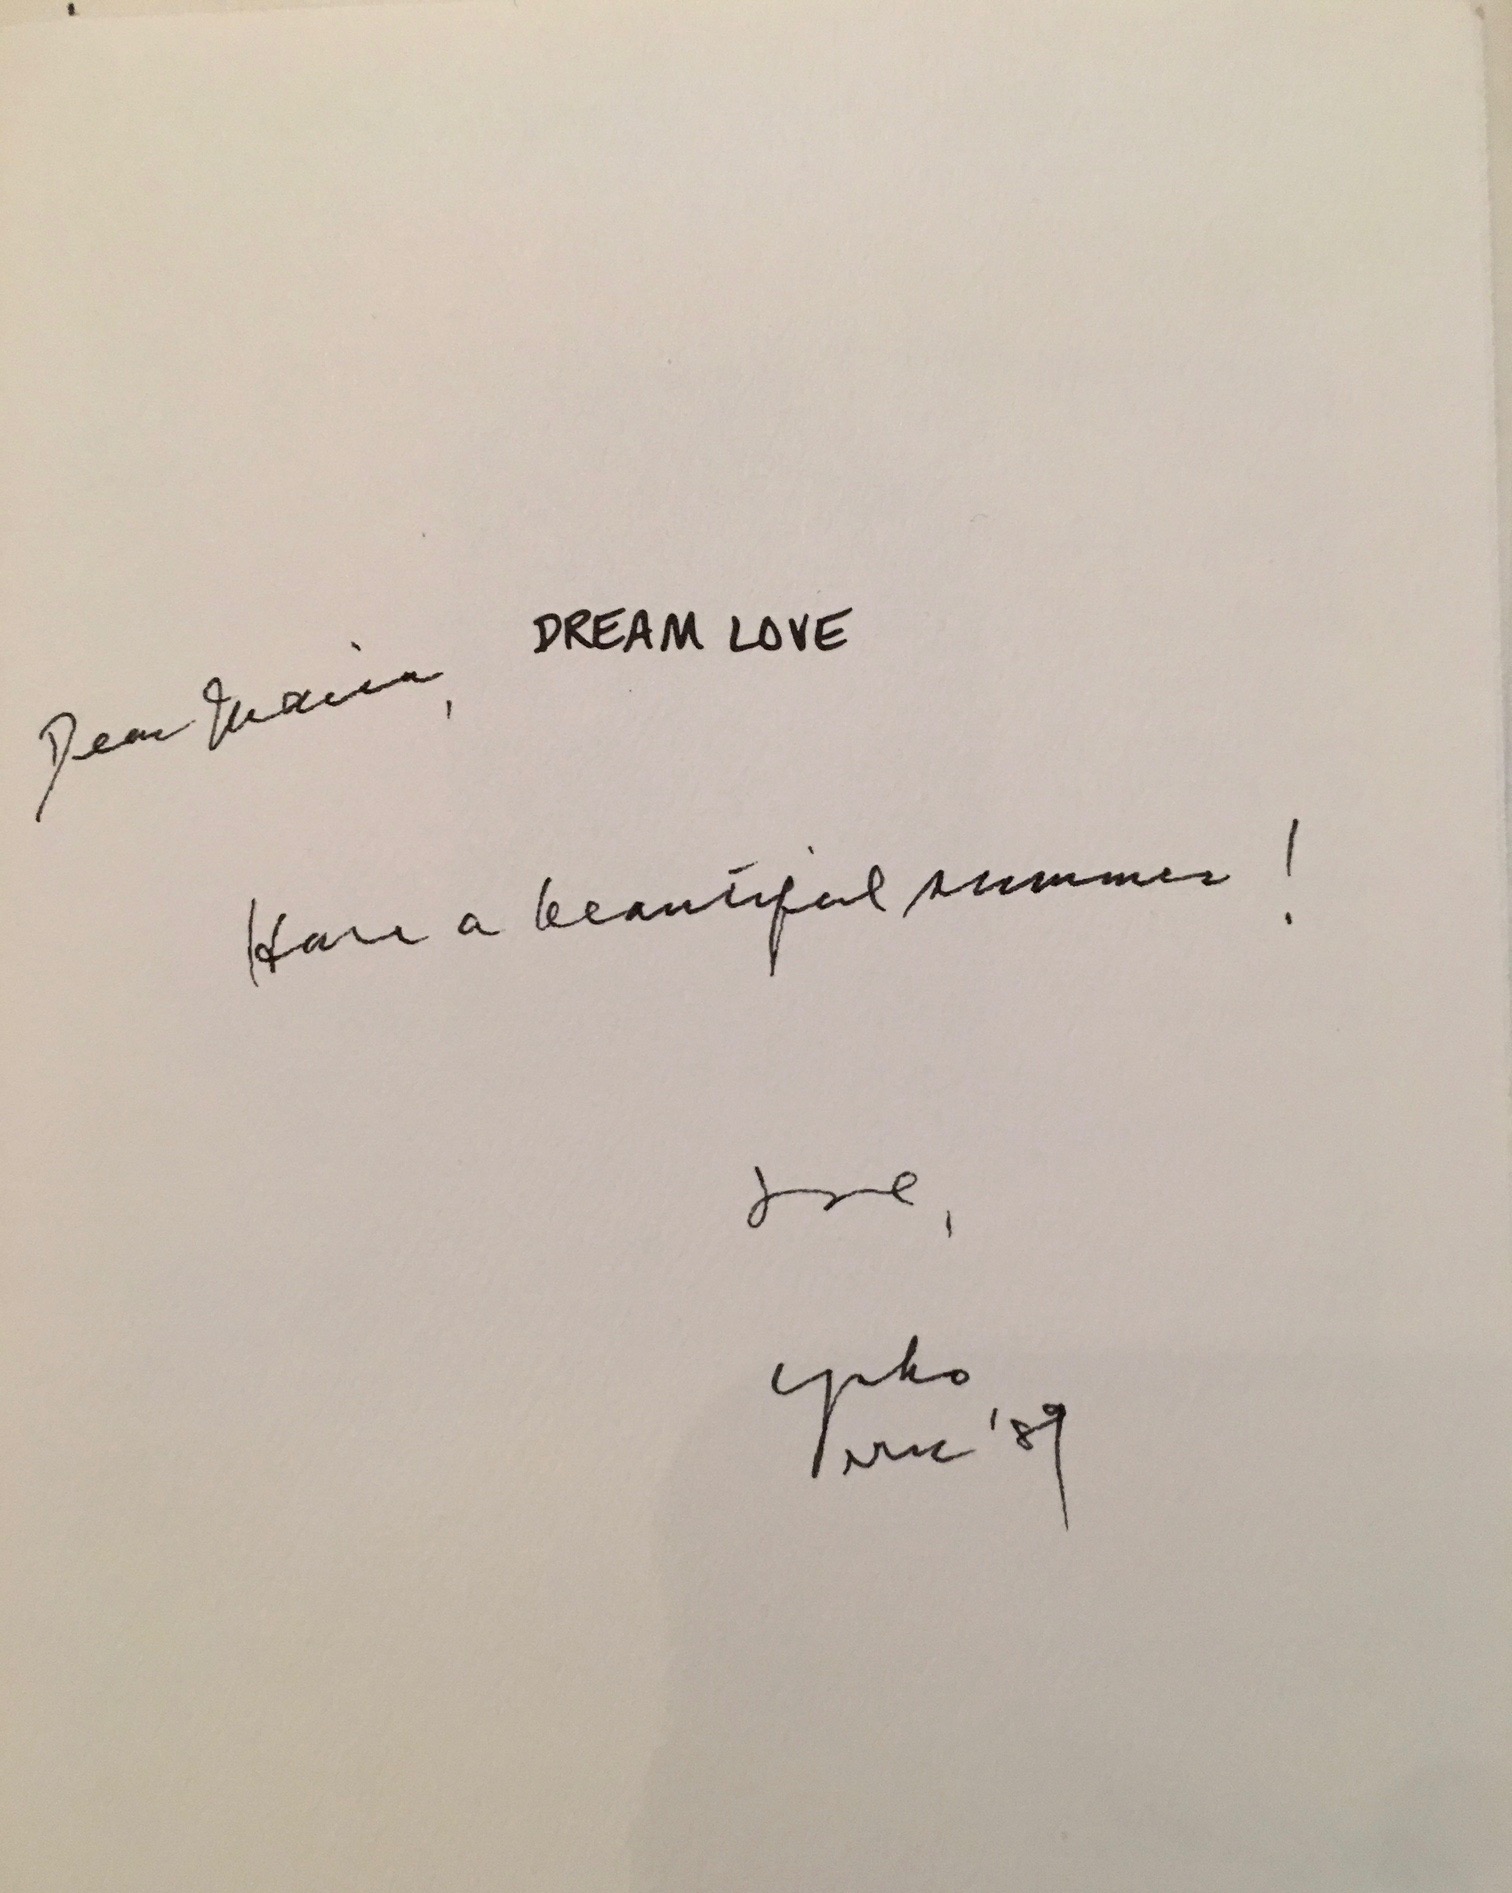 DREAM LOVE
Dear Maria,
Have a beautiful summer!
love,
yoko
NYC '89